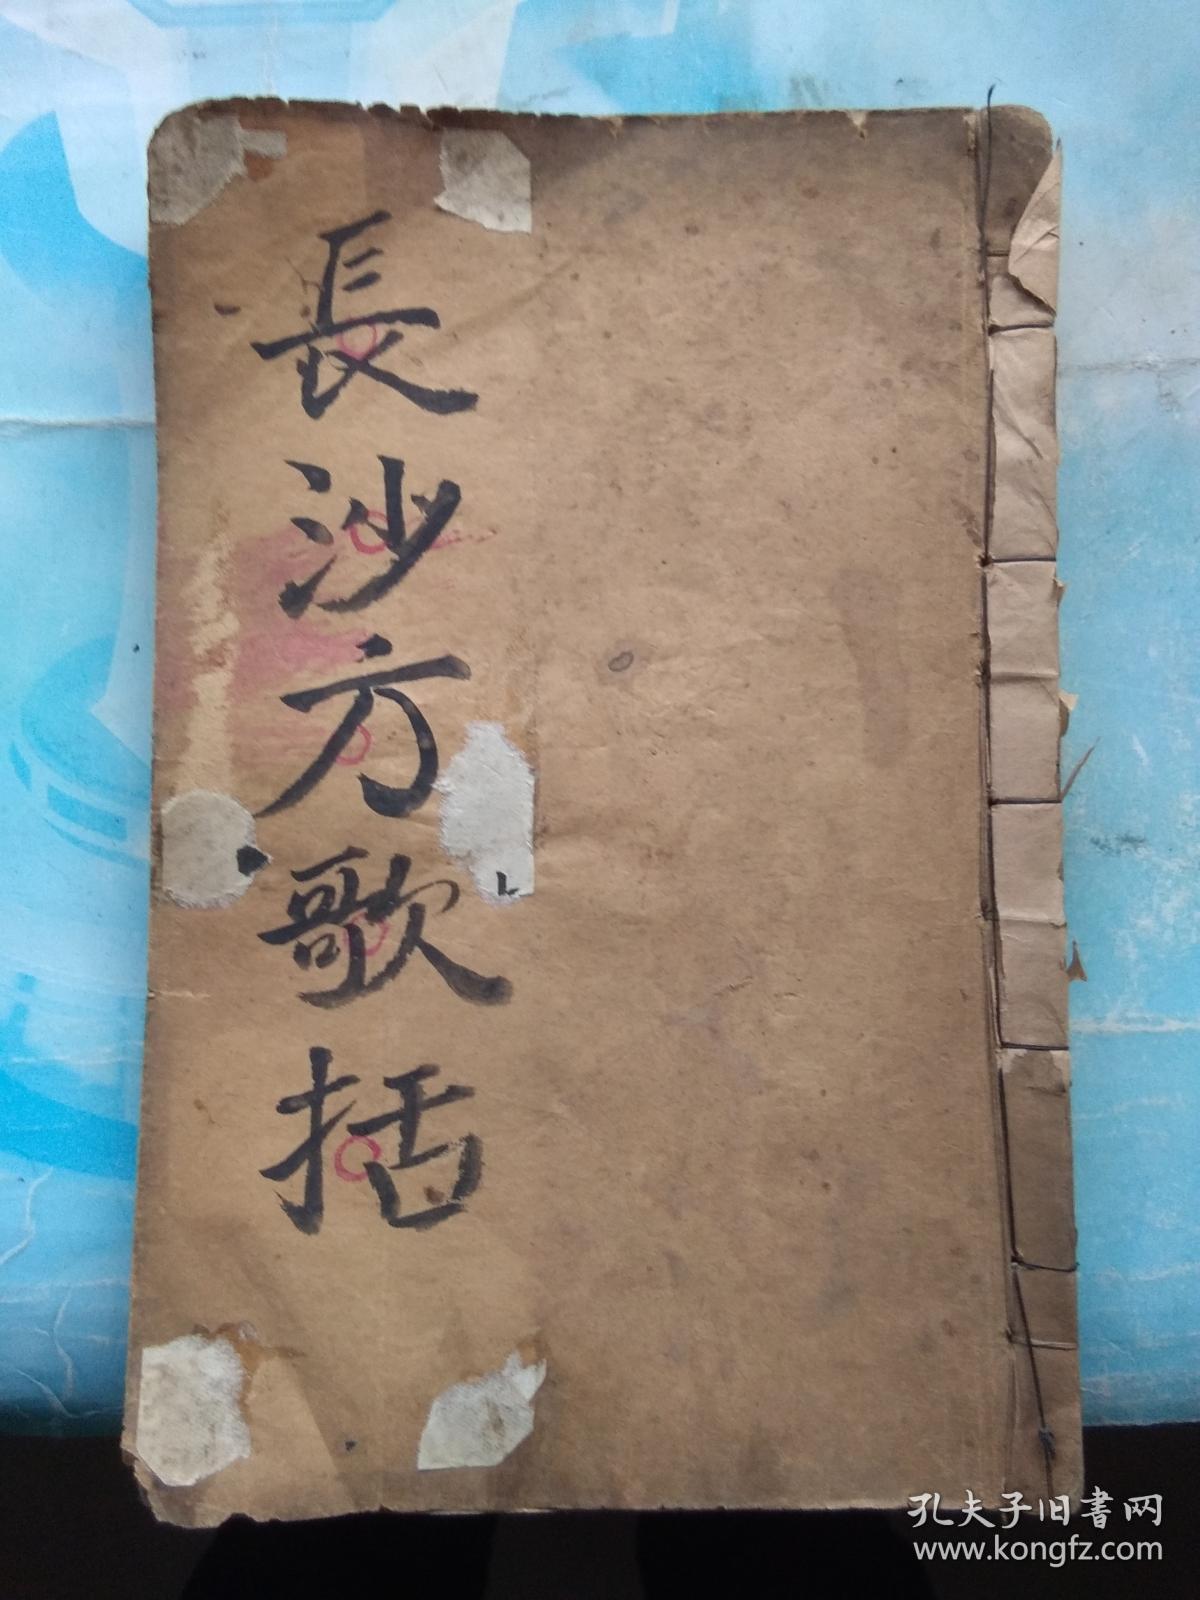 長沙方歌括
孔夫子旧書网
www.kongfz.com